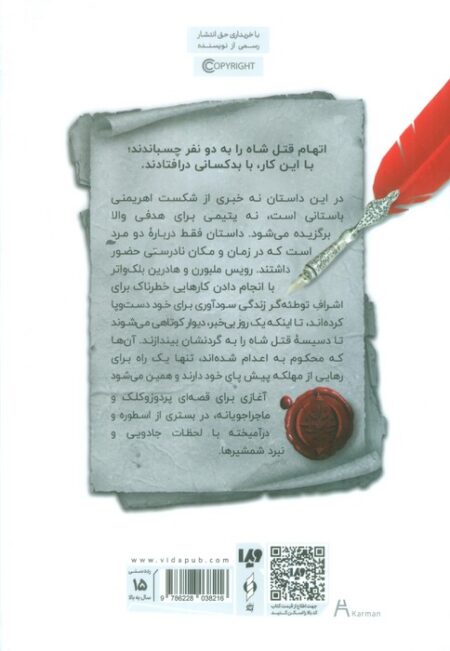 با خریداری حق انتشار
رسمی از نویسنده
COPYRIGHT
اتهام قتل شاه را به دو نفر چسباندند؛
با این کار، با بدکسانی درافتادند.
در این داستان نه خبری از شکست اهریمنی
باستانی است، نه یتیمی برای هدفی والا
برگزیده می‌شود. داستان فقط دربارهٔ دو مرد
است که در زمان و مکان نادرستی حضور
داشتند. رویس ملبورن و هادرین بلک‌واتر
با انجام دادن کارهایی خطرناک برای
اشراف توطئه‌گر زندگی سودآوری برای خود دست‌وپا
کرده‌اند، تا اینکه یک روز بی‌خبر، دیوار کوتاهی می‌شوند
تا دسیسهٔ قتل شاه را به گردنشان بیندازند. آن‌ها
که محکوم به اعدام شده‌اند، تنها یک راه برای
رهایی از مهلکه پیش پای خود دارند و همین می‌شود
آغازی برای قصه‌ای پردوزوکلک و
ماجراجویانه، در بستری از اسطوره و
درآمیخته با لحظات جادویی و
نبرد شمشیرها.
www.vidapub.com
9 786228 038216
رده‌سنی
۱۵
سال به بالا
ویدا
جهت اطلاع از قیمت کتاب
کد بالا را اسکن کنید
Karman